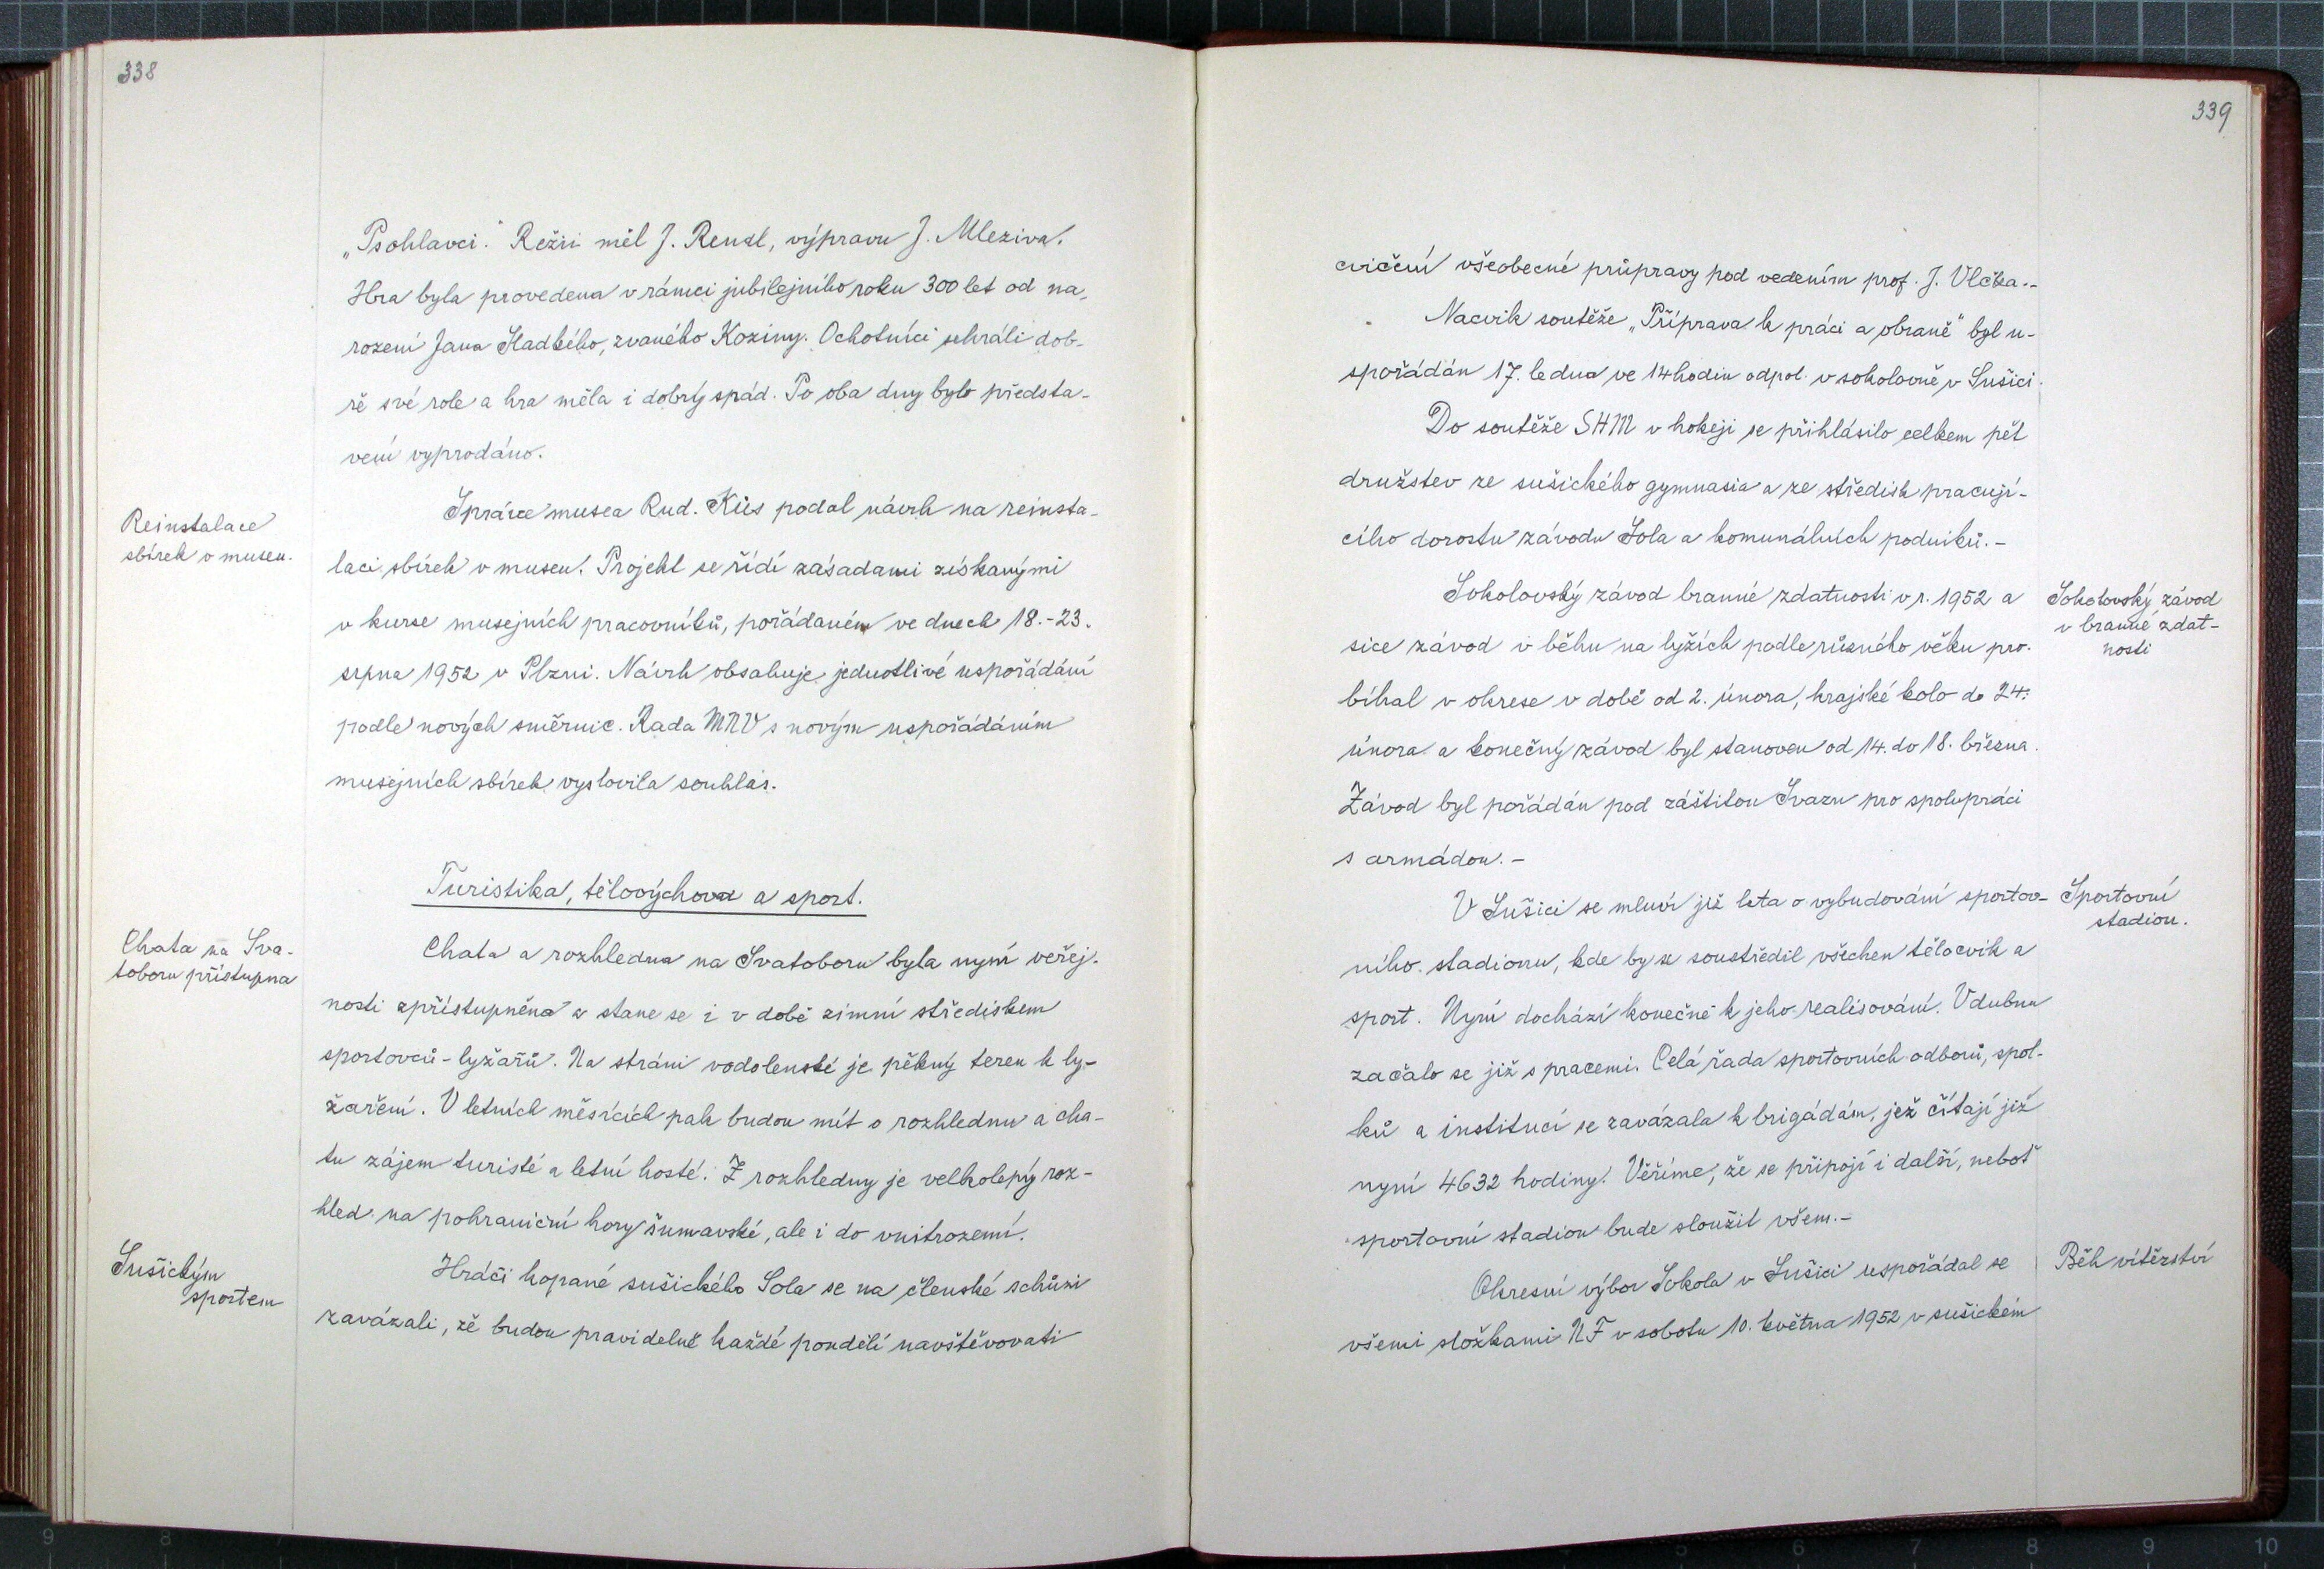 338
„Psohlavci." Režii měl J. Rendl, výpravu J. Mleziva.
Hra byla provedena v rámci jubilejního roku 300 let od na-
rození Jana Sladkého, zvaného Koziny. Ochotníci sehráli dob-
ře své role a hra měla i dobrý spád. Po oba dny bylo předsta-
vení vyprodáno.
Reinstalace
sbírek v museu.
Správce musea Rud. Kůs podal návrh na reinsta-
laci sbírek v museu. Projekt se řídí zásadami získanými
v kurse musejních pracovníků, pořádaném ve dnech 18.-23.
srpna 1952 v Plzni. Návrh obsahuje jednotlivé uspořádání
podle nových směrnic. Rada MNV s novým uspořádáním
musejních sbírek vyslovila souhlas.
Turistika, tělovýchova a sport.
Chata na Sva-
toboru přístupna
Chata a rozhledna na Svatoboru byla nyní veřej-
nosti zpřístupněna a stane se i v době zimní střediskem
sportovců-lyžařů. Na stráni vodolenské je pěkný teren k ly-
žaření. V letních měsících pak budou mít o rozhlednu a cha-
tu zájem turisté a letní hosté. Z rozhledny je velkolepý roz-
hled na pohraniční hory šumavské, ale i do vnitrozemí.
Sušickým
sportem
Hráči kopané sušického Sola se na členské schůzi
zavázali, že budou pravidelně každé pondělí navštěvovati
339
cvičení všeobecné průpravy pod vedením prof. J. Vlčka.-
Nácvik soutěže „Příprava k práci a obraně" byl u-
spořádán 17. ledna ve 14 hodin odpol. v sokolovně v Sušici.
Do soutěže SHM v hokeji se přihlásilo celkem pět
družstev ze sušického gymnasia a ze středisk pracují-
cího dorostu závodu Sola a komunálních podniků.-
Sokolovský závod branné zdatnosti v r. 1952 a
sice závod v běhu na lyžích podle různého věku pro-
bíhal v okrese v době od 2. února, krajské kolo do 24.
února a konečný závod byl stanoven od 14. do 18. března.
Závod byl pořádán pod záštitou Svazu pro spolupráci
s armádou.-
Sokolovský závod
v branné zdat-
nosti
V Sušici se mluví již léta o vybudování sportov-
ního stadionu, kde by se soustředil všechen tělocvik a
sport. Nyní dochází konečně k jeho realisování. V dubnu
začalo se již s pracemi. Celá řada sportovních odborů, spol-
ků a institucí se zavázala k brigádám, jež čítají již
nyní 4632 hodiny. Věříme, že se připojí i další, neboť
sportovní stadion bude sloužit všem.-
Sportovní
stadion.
Okresní výbor Sokola v Sušici uspořádal se
všemi složkami NF v sobotu 10. května 1952 v sušickém
Běh vítězství
9
8
5
6
7
8
9
10